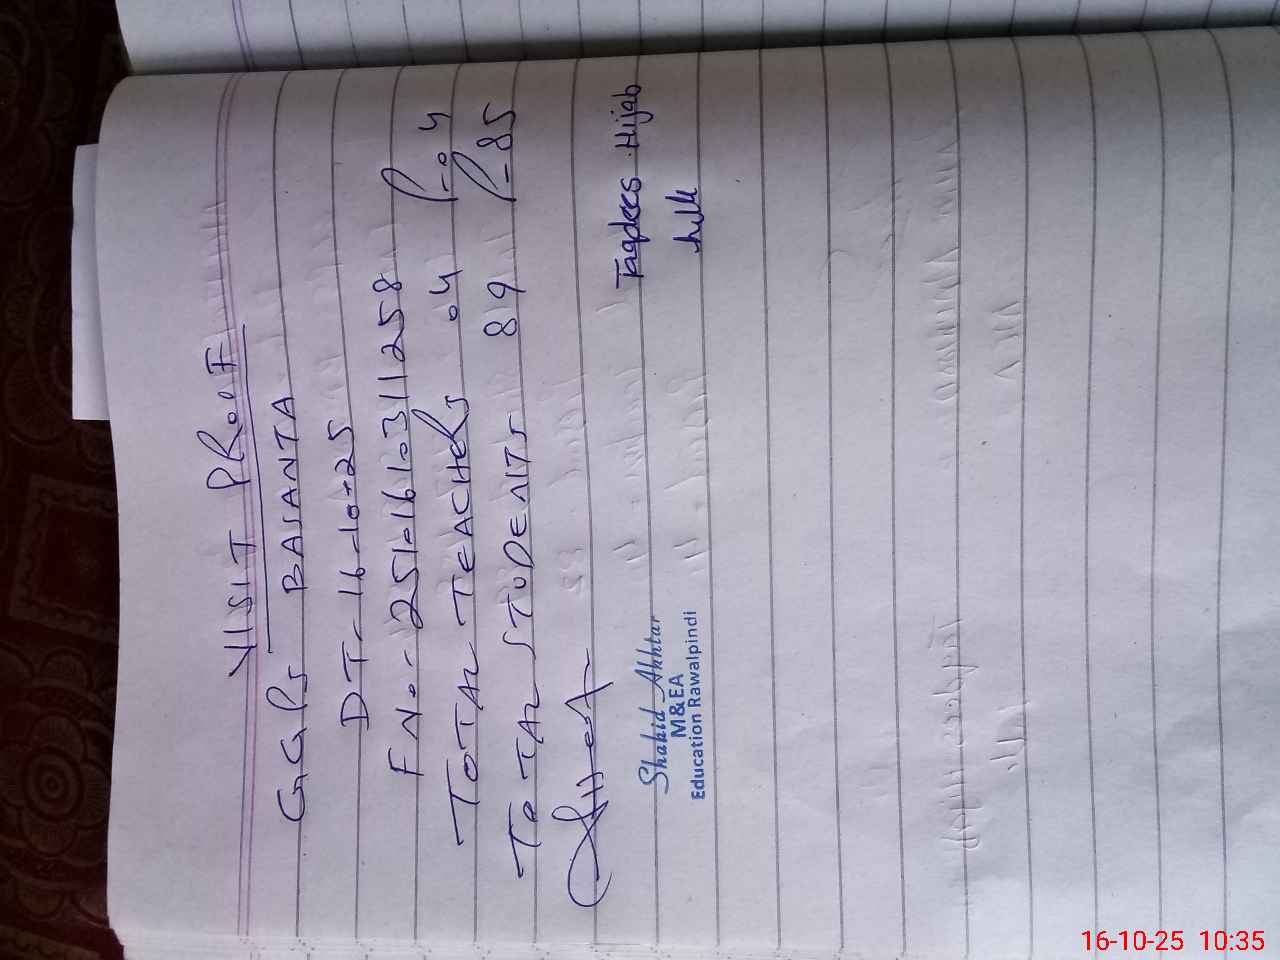 VISIT PROOF
GGPS BASANTA
DT-16-10-25
F No-25101610311258
TOTAL TEACHERS 04 P-04
TOTAL STUDENTS 89 P-85
Taqdees Hijab
Shahid Akhtar
M&EA
Education Rawalpindi
16-10-25 10:35